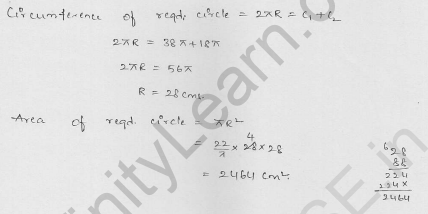 Circumference of reqd. circle = 2πR = C₁ + C₂
2πR = 38π + 18π
2πR = 56π
R = 28 cms.
Area of reqd. circle = πR²
= 22/7 × 28 × 28
4
= 2464 cm².
6
28
88
224
224×
2464